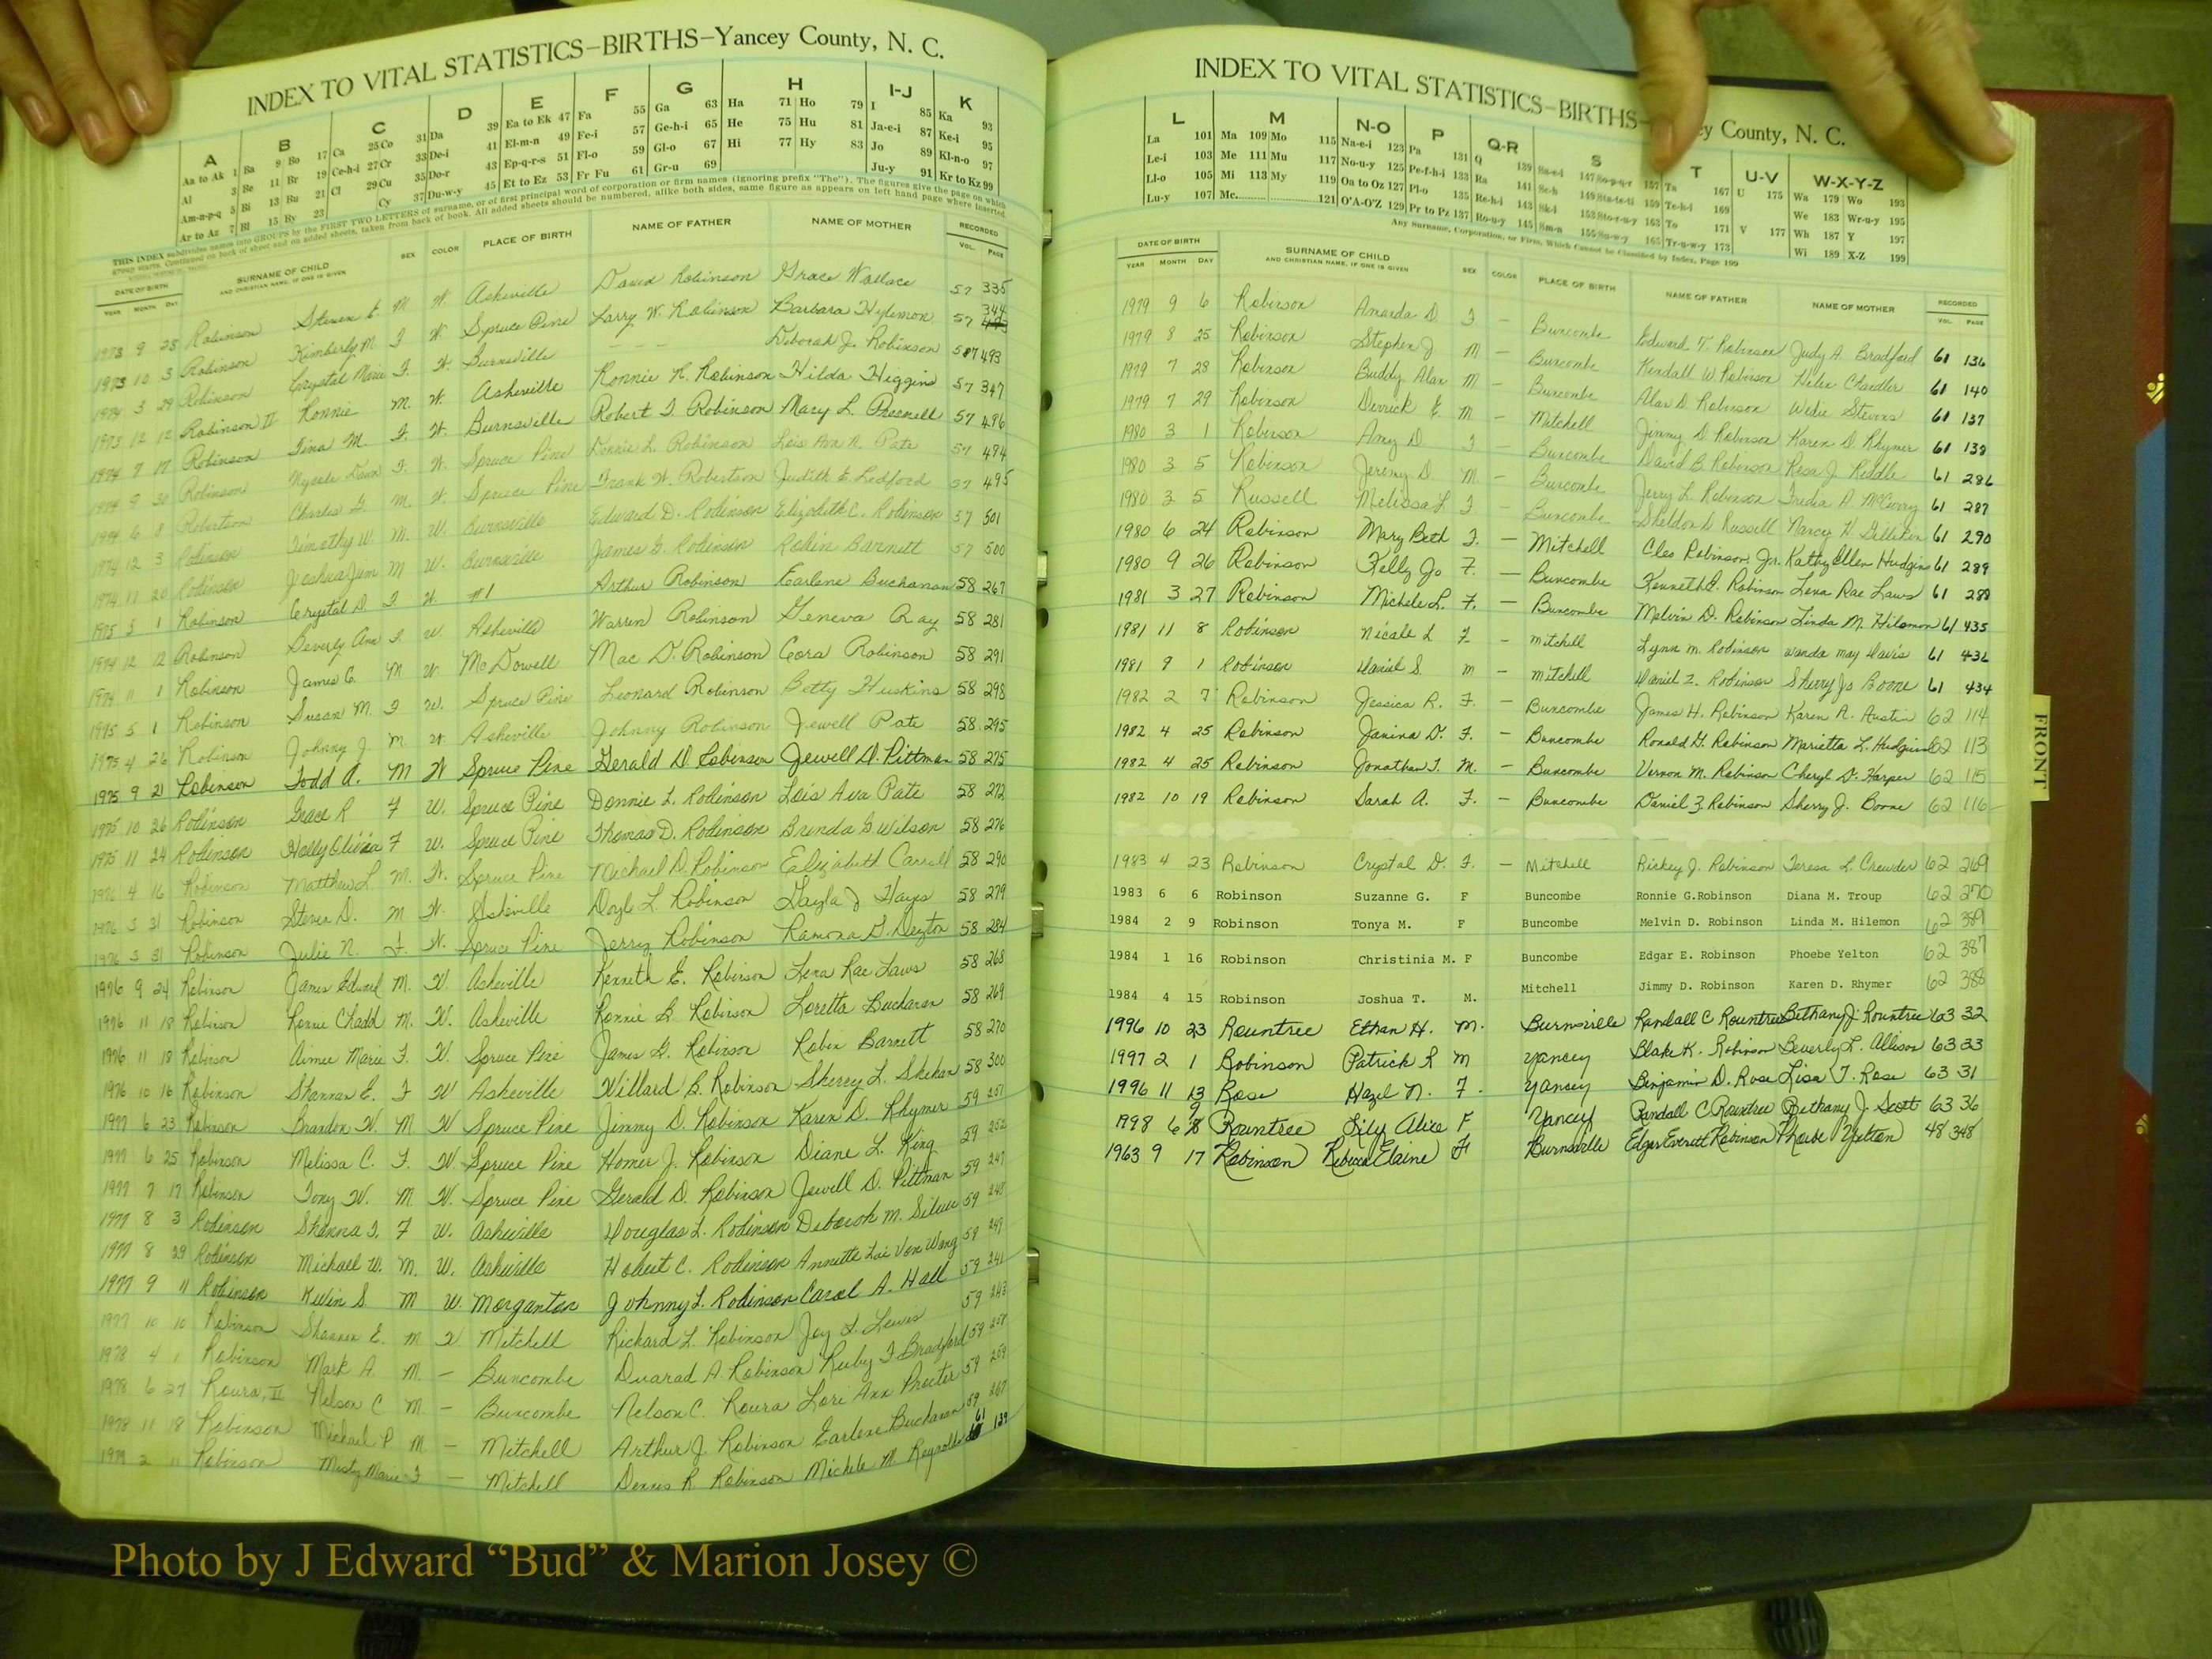 INDEX TO VITAL STATISTICS–BIRTHS–Yancey County, N. C.
A B C D E F G H I-J K
Aa to Ak 1 Ba 9 Bo 17 Ca 25 Co 31 Da 39 Ea to Ek 47 Fa 55 Ga 63 Ha 71 Ho 79 I 85 Ka 93
Al 3 Be 11 Br 19 Ce-h-i 27 Cr 33 De-i 41 El-m-n 49 Fe-i 57 Ge-h-i 65 He 75 Hu 81 Ja-e-i 87 Ke-i 95
Am-n-p-q 5 Bi 13 Bu 21 Cl 29 Cu 35 Do-r 43 Ep-q-r-s 51 Fl-o 59 Gl-o 67 Hi 77 Hy 83 Jo 89 Kl-n-o 97
Ar to Az 7 Bl 15 By 23 Cy 37 Du-w-y 45 Et to Ez 53 Fr Fu 61 Gr-u 69 Ju-y 91 Kr to Kz 99
THIS INDEX subdivides names into GROUPS by the FIRST TWO LETTERS of surname, or of first principal word of corporation or firm names (ignoring prefix "The"). The figures give the page on which
group starts. Continued on back of sheet and on added sheets, taken from back of book. All added sheets should be numbered, alike both sides, same figure as appears on left hand page where inserted
DATE OF BIRTH SURNAME OF CHILD SEX COLOR PLACE OF BIRTH NAME OF FATHER NAME OF MOTHER RECORDED
YEAR MONTH DAY AND CHRISTIAN NAME, IF ONE IS GIVEN VOL. PAGE
1973 9 25 Robinson Steven E. M W. Asheville David Robinson Grace Wallace 57 335
1973 10 3 Robinson Kimberly M. F W. Spruce Pine Larry W. Robinson Barbara Hylemon 57 344
1974 3 29 Robinson Crystal Marie F. W. Burnsville – – – Deborah J. Robinson 57 493
1973 12 12 Robinson II Ronnie M. W. Asheville Ronnie R. Robinson Hilda Higgins 57 347
1974 7 17 Robinson Tina M. F. W. Burnsville Robert F. Robinson Mary L. Presnell 57 496
1974 9 30 Robinson Dawn F. W. Spruce Pine Donnie L. Robinson Lois Ava N. Pate 57 494
1974 6 8 Robertson Charles G. M W. Spruce Pine Frank W. Robertson Judith E. Ledford 57 495
1974 12 3 Robinson Timothy W. M. W. Burnsville Edward D. Robinson Elizabeth C. Robinson 57 501
1974 11 20 Robinson Joshua Jim M W. Burnsville James G. Robinson Robin Barnett 57 500
1975 3 1 Robinson Crystal D. F W. Arthur Robinson Earlene Buchanan 58 267
1974 12 12 Robinson Beverly Ann F. W. Asheville Warren Robinson Geneva Ray 58 281
1974 11 1 Robinson James C. M W. McDowell Mac D. Robinson Cora Robinson 58 291
1975 5 1 Robinson Susan M. F W. Spruce Pine Leonard Robinson Betty Huskins 58 298
1975 4 26 Robinson Johnny J. M. W. Asheville Johnny Robinson Jewell Pate 58 295
1975 9 21 Robinson Todd A. M W Spruce Pine Gerald D. Robinson Jewell D. Pittman 58 275
1975 10 26 Robinson Grace R F W. Spruce Pine Donnie L. Robinson Lois Ava Pate 58 272
1975 11 24 Robinson Holly Olivia F W. Spruce Pine Thomas D. Robinson Brenda G Wilson 58 276
1976 4 16 Robinson Matthew L. M. W. Spruce Pine Michael D. Robinson Elizabeth Carroll 58 290
1976 5 31 Robinson Steven D. M W. Asheville Doyle L. Robinson Gayla J Hayes 58 279
1976 5 31 Robinson Julie N. F. W. Spruce Pine Jerry Robinson Ramona G. Deyton 58 284
1976 9 24 Robinson James Edward M. W. Asheville Kenneth E. Robinson Lena Rae Laws 58 268
1976 11 18 Robinson Ronnie Chadd M. W. Asheville Ronnie G. Robinson Loretta Buchanan 58 269
1976 11 18 Robinson Aimee Marie F. W. Spruce Pine James G. Robinson Robin Barnett 58 270
1976 10 16 Robinson Shannan E. F W Asheville Willard B. Robinson Sherry L. Shehan 58 300
1977 6 23 Robinson Brandon W. M W Spruce Pine Jimmy D. Robinson Karen D. Rhymer 59 251
1977 6 25 Robinson Melissa C. F. W Spruce Pine Homer J. Robinson Diane L. King 59 252
1977 7 17 Robinson Tony W. M. W. Spruce Pine Gerald D. Robinson Jewell D. Pittman 59 247
1977 8 3 Robinson Shanna F. F W. Asheville Douglas L. Robinson Deborah M. Silver 59 248
1977 8 29 Robinson Michael W. M. W. Asheville Hobert C. Robinson Annette Lai Von Wang 59 249
1977 9 11 Robinson Kevin S. M W. Morganton Johnny L. Robinson Carol A. Hall 59 241
1977 10 10 Robinson Shannon E. M Mitchell Richard L. Robinson Joy L. Lewis 59 243
1978 4 1 Robinson Mark A. M. – Buncombe Duarad A. Robinson Ruby F Bradford 59
1978 6 27 Roura, II Nelson C M. – Buncombe Nelson C. Roura Lori Ann Procter 59 259
1978 11 18 Robinson Michael P M. – Mitchell Arthur J. Robinson Earlene Buchanan 59 267
1979 2 11 Robinson Misty Marie F – Mitchell Dennis R. Robinson Michele M. Reynolds 61 129
INDEX TO VITAL STATISTICS–BIRTHS– ey County, N. C.
L M N-O P Q-R S T U-V W-X-Y-Z
La 101 Ma 109 Mo 115 Na-e-i 123 Pa 131 Q 139 Sa-e-i 147 So-p-q-r 157 Ta 167 U 175 Wa 179 Wo 193
Le-i 103 Me 111 Mu 117 No-u-y 125 Pe-f-h-i 133 Ra 141 Sc-h 149 Sta-te-ti 159 Te-h-i 169 We 183 Wr-u-y 195
Ll-o 105 Mi 113 My 119 Oa to Oz 127 Pl-o 135 Re-h-i 143 Sk-l 153 Sto-r-u-y 163 To 171 V 177 Wh 187 Y 197
Lu-y 107 Mc 121 O'A-O'Z 129 Pr to Pz 137 Ro-u-y 145 Sm-n 155 Su-w-y 165 Tr-u-w-y 173 Wi 189 X-Z 199
Any Surname, Corporation, or Firm, Which Cannot be Classified by Index, Page 199
DATE OF BIRTH SURNAME OF CHILD SEX COLOR PLACE OF BIRTH NAME OF FATHER NAME OF MOTHER RECORDED
YEAR MONTH DAY AND CHRISTIAN NAME, IF ONE IS GIVEN VOL. PAGE
1979 9 6 Robinson Amanda D. F – Buncombe Edward T. Robinson Judy A. Bradford 61 136
1979 8 25 Robinson Stephen J M – Buncombe Kendall W Robinson Helen Chandler 61 140
1979 7 28 Robinson Buddy Alan M – Buncombe Alan D. Robinson Stevens 61 137
1979 7 29 Robinson Derrick E. M. – Mitchell Jimmy D Robinson Karen D. Rhymer 61 139
1980 3 1 Robinson Amy D. F – Buncombe David B. Robinson Rosa J. Riddle 61 286
1980 3 5 Robinson Jeremy D M – Buncombe Jerry L. Robinson Fredia A. McCurry 61 287
1980 3 5 Russell Melissa L F – Buncombe Sheldon D Russell Nancy H. 61 290
1980 6 24 Robinson Mary Beth F. – Mitchell Cleo Robinson, Jr. Kathy Ellen Hudgins 61 289
1980 9 26 Robinson Kelly Jo F. – Buncombe Kenneth E. Robinson Lena Rae Laws 61 288
1981 3 27 Robinson Michele L. F. – Buncombe Melvin D. Robinson Linda M. Hilemon 61 435
1981 11 8 Robinson Nicole L F – Mitchell Lynn M. Robinson Wanda May Davis 61 436
1981 9 1 Robinson Daniel S. M – Mitchell Daniel Z. Robinson Sherry Jo Boone 61 434
1982 2 7 Robinson Jessica R. F. – Buncombe James H. Robinson Karen A. Austin 62 114
1982 4 25 Robinson Janina D. F. – Buncombe Ronald G. Robinson Marietta L. Hudgins 62 113
1982 4 25 Robinson Jonathan T. M. – Buncombe Vernon M. Robinson Cheryl D. Harper 62 115
1982 10 19 Robinson Sarah A. F. – Buncombe Daniel Z. Robinson Sherry J. Boone 62 116
1983 4 23 Robinson Crystal D. F. – Mitchell Rickey J. Robinson Teresa L. Crowder 62 269
1983 6 6 Robinson Suzanne G. F Buncombe Ronnie G.Robinson Diana M. Troup 62 270
1984 2 9 Robinson Tonya M. F Buncombe Melvin D. Robinson Linda M. Hilemon 62 389
1984 1 16 Robinson Christinia M. F Buncombe Edgar E. Robinson Phoebe Yelton 62 387
1984 4 15 Robinson Joshua T. M. Mitchell Jimmy D. Robinson Karen D. Rhymer 62 388
1996 10 23 Rountree Ethan H. M. Burnsville Randall C Rountree Bethany J. Rountree 63 32
1997 2 1 Robinson Patrick R M Yancey Blake K. Robinson Beverly L. Allison 63 33
1996 11 13 Rose Hazel N. F. Yancey Benjamin D. Rose Lisa T. Rose 63 31
1998 6 9 Rountree Lily Alice F Yancey Randall C Rountree Bethany J. Scott 63 36
1963 9 17 Robinson Rebecca Elaine F Burnsville Edgar Everett Robinson Phoebe Yelton 48 348
FRONT
Photo by J Edward “Bud” & Marion Josey ©